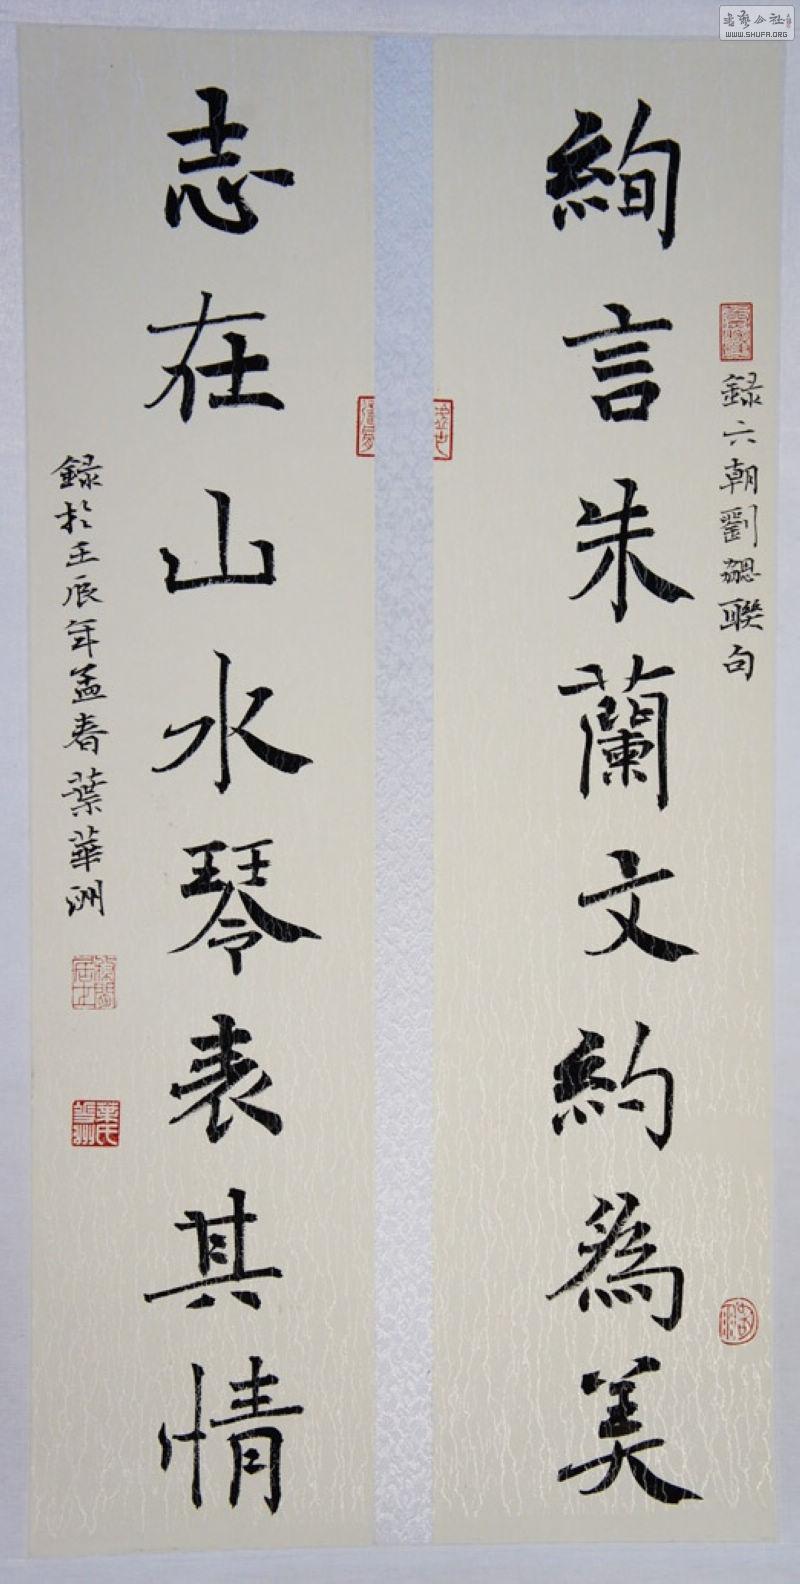 絢言朱蘭文約為美
録六朝劉勰聯句
志在山水琴表其情
録於壬辰年孟春葉華洲
WWW.SHUFA.ORG